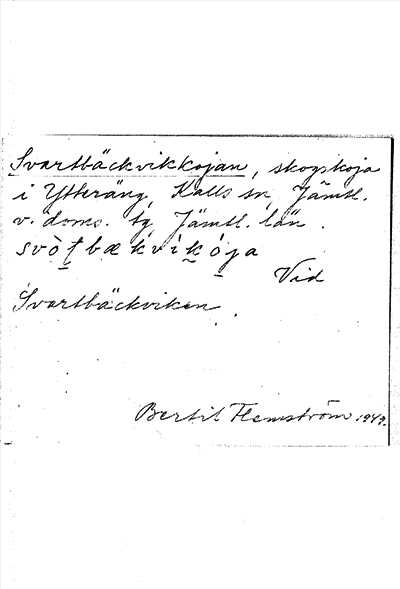 Svartbäckvikkojan, skogskoja
i Ytteräng, Kalls sn, Jämtl.
v. doms. tg, Jämtl. län.
svòt̠bækvìk̠ó̠ja
Vid
Svartbäckviken.
Bertil Flemström 1949.